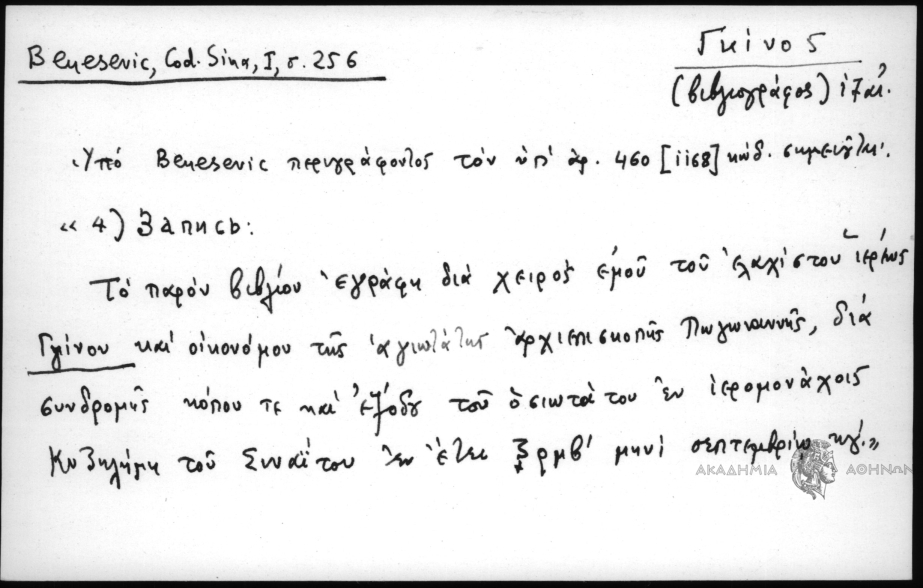 Γκίνος
Benesevic, Cod. Sina, I, σ. 256
(βιβλιογράφος)
Ὑπό Benesevic περιγράφοντος τόν ὑπ' ἀρ. 460 [ii68] κώδ. σημειοῦται.
« 4) Запись:
Τό παρόν βιβλίον ἐγράφη διά χειρός ἐμοῦ τοῦ ἐλαχίστου ἱερέως
Γκίνου καί οἰκονόμου τῆς ἁγιωτάτης ἀρχιεπισκοπῆς Πωγωιαννῆς, διά
συνδρομῆς κόπου τε καί ἐξόδου τοῦ ὁσιωτάτου ἐν ἱερομονάχοις
τοῦ Σιναΐτου ἐν ἔτει ξρμβ' μηνί σεπτεμβρίῳ κγ'.»
ΑΚΑΔΗΜΙΑ ΑΘΗΝΩΝ